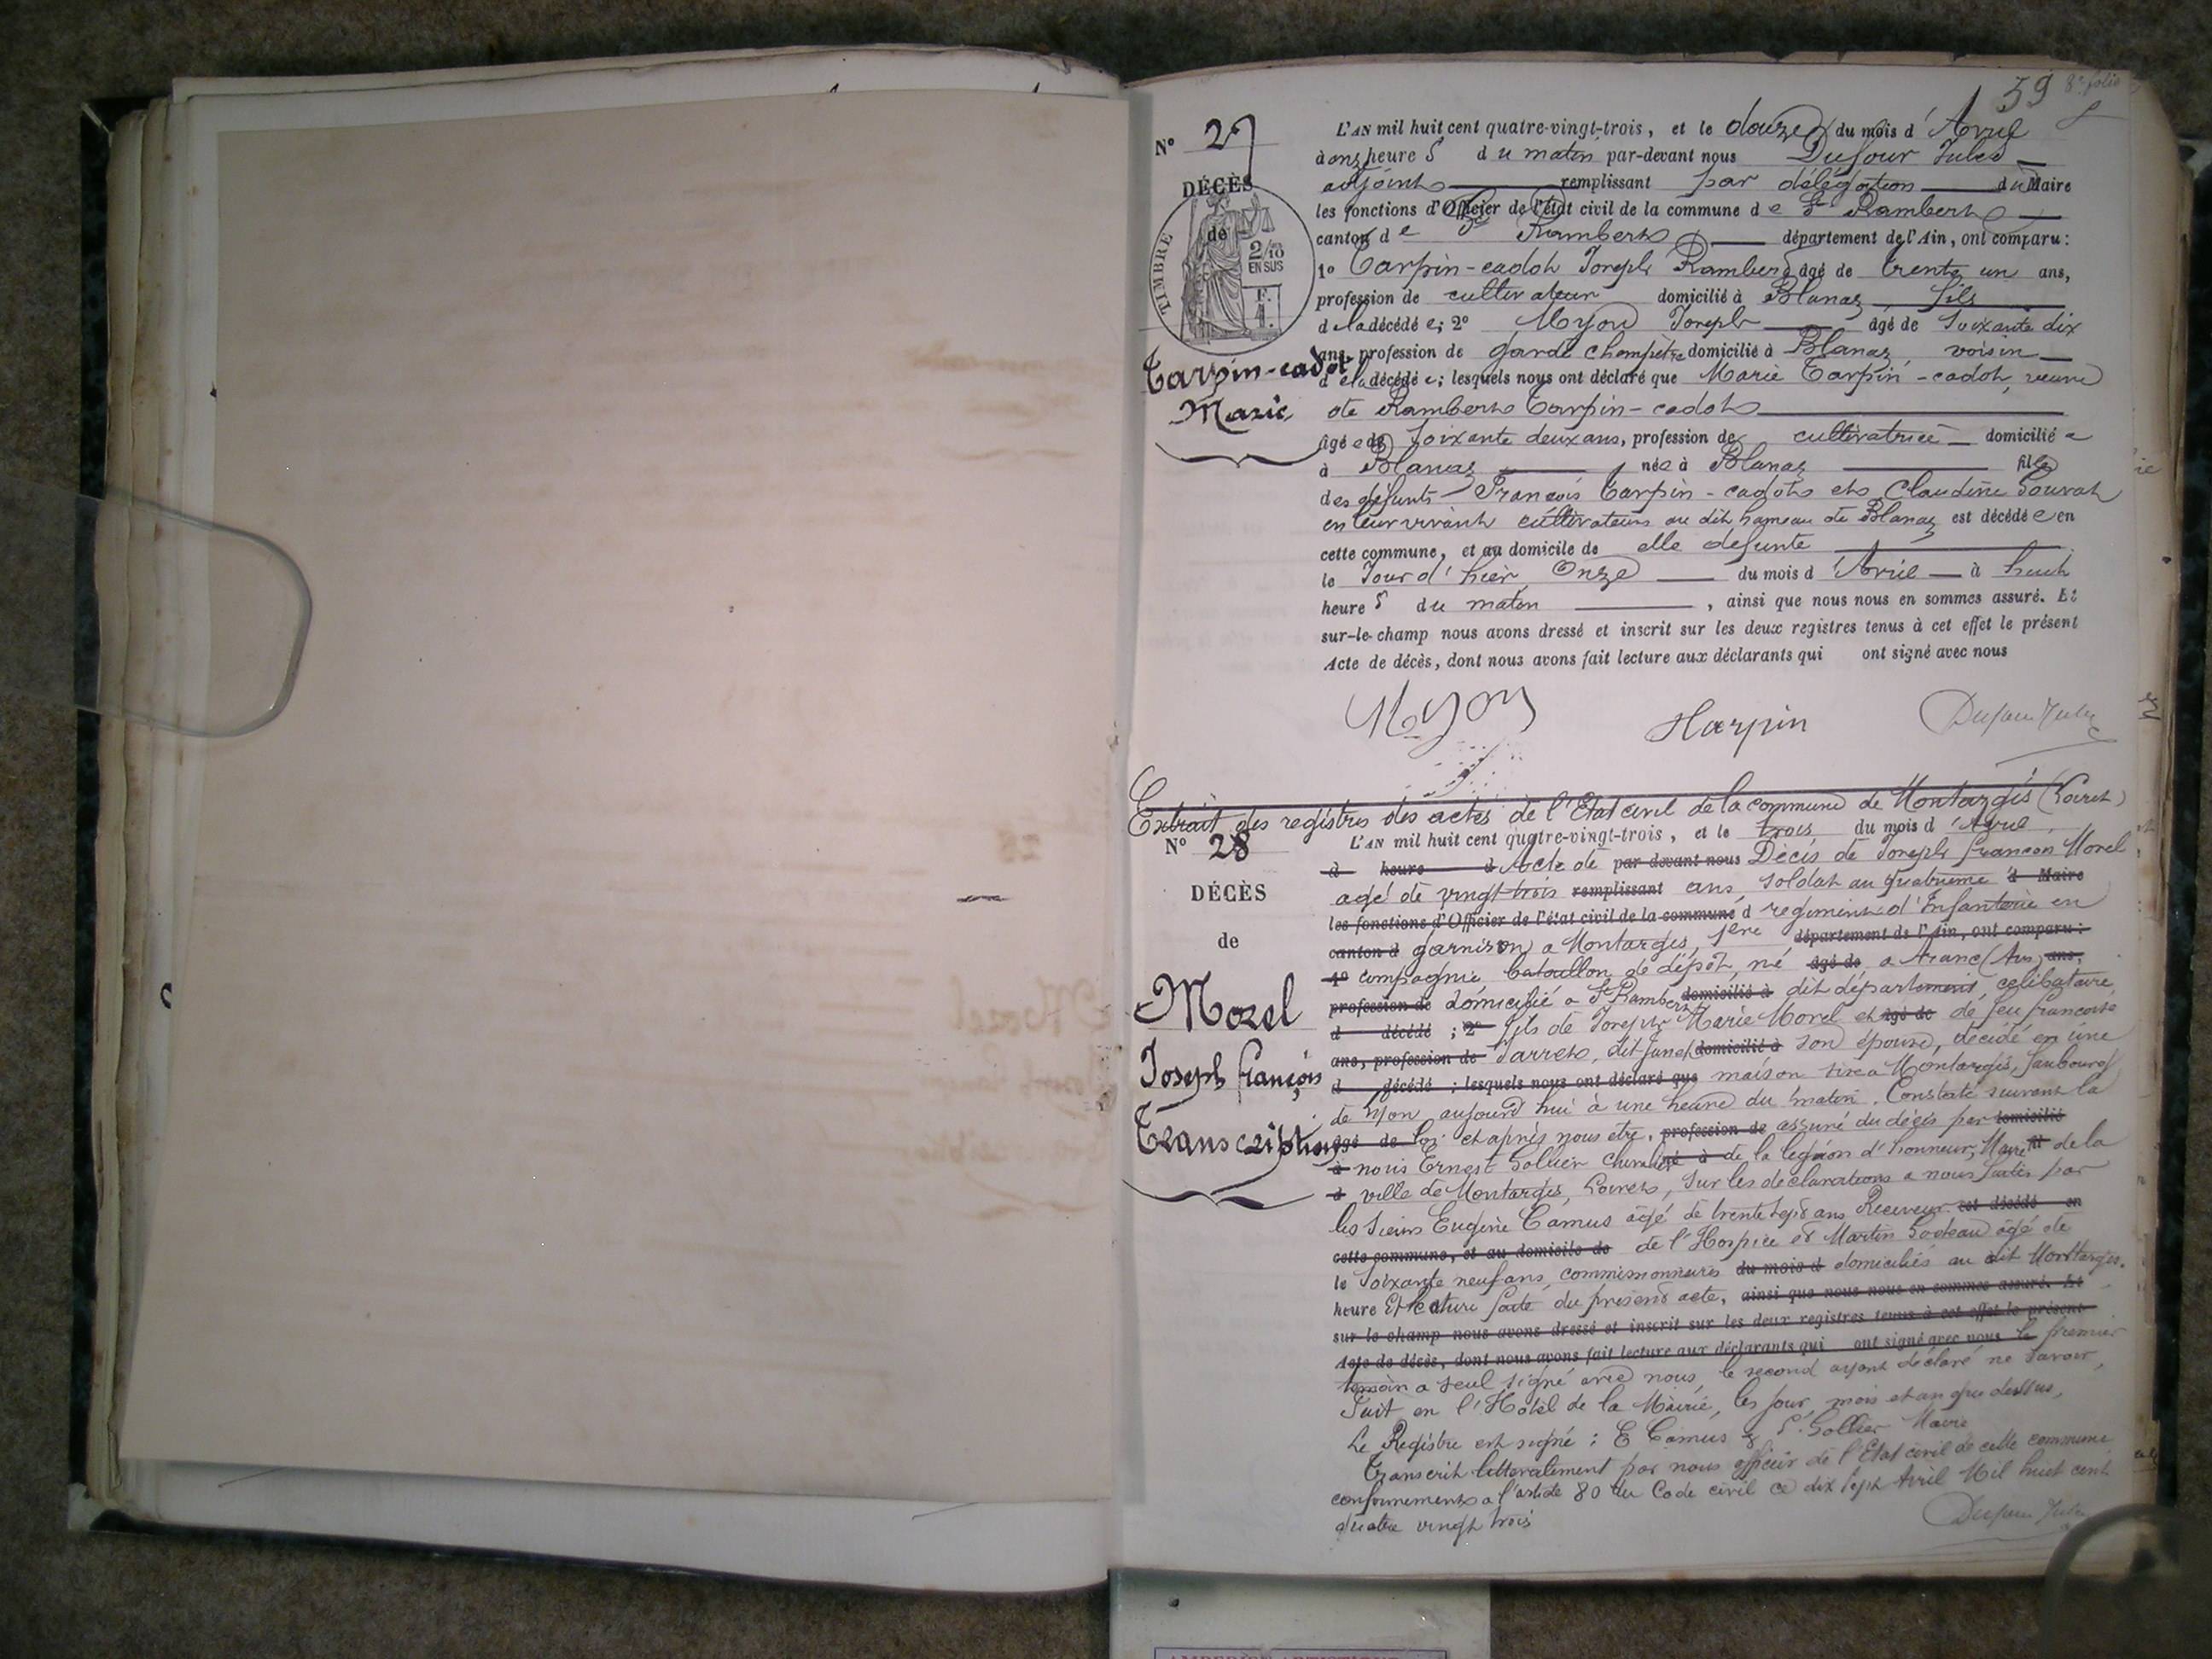 59 8e folio
N° 27
DÉCÈS
de
TIMBRE
2/10
EN SUS
F.
Tarpin-cadot
Marie
L'AN mil huit cent quatre-vingt-trois, et le douze du mois d'Avril
à onz heure s du matin par-devant nous Dufour Jules
adjoint remplissant par délégation du Maire
les fonctions d'Officier de l'état civil de la commune de St Rambert
canton de St Rambert département de l'Ain, ont comparu:
1° Tarpin-cadot Joseph Rambert âgé de trente un ans,
profession de cultivateur domicilié à Blanaz, fils
d e la décédé e; 2° Myon Joseph âgé de soixante dix
ans, profession de garde champêtre domicilié à Blanaz, voisin
d e la décédé e; lesquels nous ont déclaré que Marie Tarpin-cadot, veuve
de Rambert Tarpin-cadot
âgé e de soixante deux ans, profession de cultivatrice domicilié e
à Blanaz née à Blanaz fille
des défunts François Tarpin-cadot et Claudine Souvrat
en leur vivant cultivateurs au dit hameau de Blanaz est décédé e en
cette commune, et au domicile de elle defunte
le Jour d'hier Onze du mois d'Avril à huit
heure s du matin, ainsi que nous nous en sommes assuré. Et
sur-le-champ nous avons dressé et inscrit sur les deux registres tenus à cet effet le présent
Acte de décès, dont nous avons fait lecture aux déclarants qui ont signé avec nous
Myon Tarpin Dufour Jules
Extrait des registres des actes de l'Etat civil de la commune de Montargis (Loiret)
N° 28
DÉCÈS
de
Morel
Joseph françois
Transcription
L'AN mil huit cent quatre-vingt-trois, et le trois du mois d'Avril
à heure d Acte de par-devant nous Décès de Joseph françois Morel
agé de vingt trois remplissant ans, soldat au quatrième d Maire
les fonctions d'Officier de l'état civil de la commune d régiment d'Infanterie en
canton d garnison a Montargis, 1ere département de l'Ain, ont comparu:
1° compagnie, bataillon de dépôt, né âgé de a Aranc (Ain) ans,
profession de domicilié a St Rambert domicilié à dit département, célibataire,
d décédé ; 2° fils de Joseph Marie Morel et âgé de de feu françoise
ans, profession de Jarret, dit Junet domicilié à son épouse, décédé en une
d décédé ; lesquels nous ont déclaré que maison sise a Montargis, faubourg
de Lyon aujourd'hui à une heure du matin. Constaté suivant la
âgé de loi et après nous etre, profession de assuré du décès par domicilié
à nous Ernest Sollier chevalier né à de la légion d'honneur, Maire fil de la
d ville de Montargis, Loiret, sur les declarations a nous faites par
les sieurs Eugène Camus âgé de trente sept ans Receveur est décédé en
cette commune, et au domicile de de l'Hospice et Martin Godeau âgé de
le soixante neuf ans, commissionnaires du mois d domiciliés au dit Montargis.
heure Et lecture faite du présent acte, ainsi que nous nous en sommes assuré. Et
sur-le-champ nous avons dressé et inscrit sur les deux registres tenus à cet effet le présent
Acte de décès, dont nous avons fait lecture aux déclarants qui ont signé avec nous le premier
témoin a seul signé avec nous, le second ayant déclaré ne savoir,
Fait en l'Hotel de la Mairie, les jour, mois et an que dessus,
Le Registre est signé : E Camus & E. Sollier Maire
Transcrit litteralement par nous officier de l'Etat civil de cette commune
conformement a l'article 80 du Code civil ce dix sept Avril Mil huit cent
quatre vingt trois
Dufour Jules